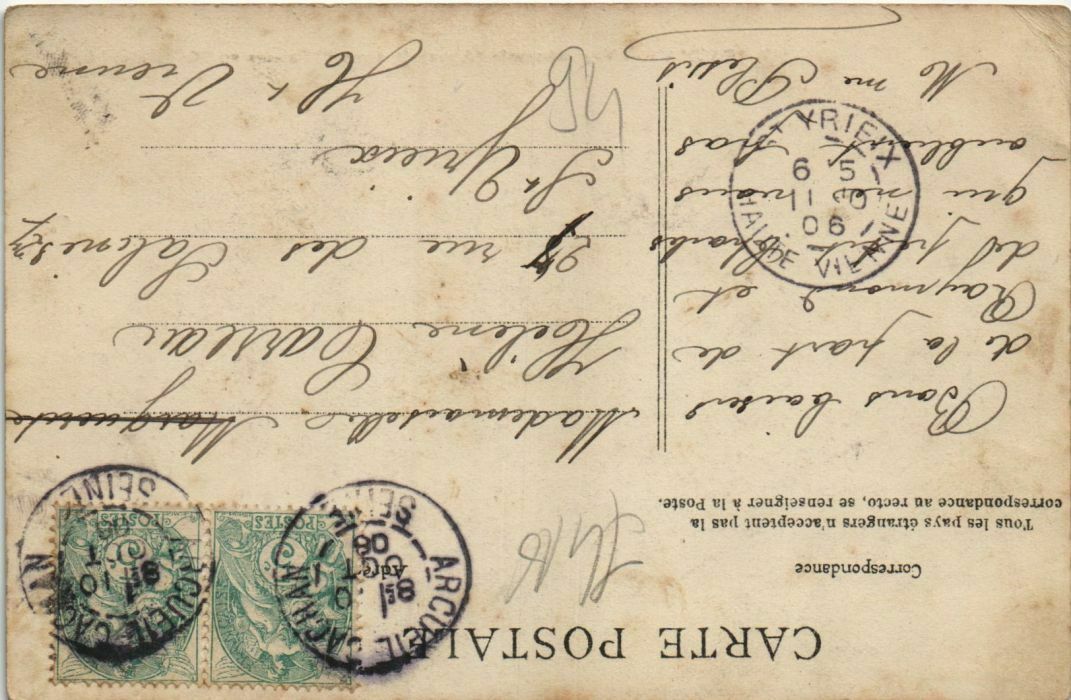 CARTE POSTALE
Correspondance
Tous les pays étrangers n'acceptent pas la
correspondance au recto, se renseigner à la Poste.
Bons baisers
de la part de
Raymond et
del petit
qui ne
oublient pas
Mo me Plaisi
Mademoiselle Marguerite
Hélène Carreau
27 rue des Salines 27
St Yrieix
Hte Vienne
ARCUEIL CACHAN
SEINE
ARCUEIL CACHAN
SEINE
POSTES
POSTES
ST YRIEIX
6 5
11 10
06
HAUTE VIENNE